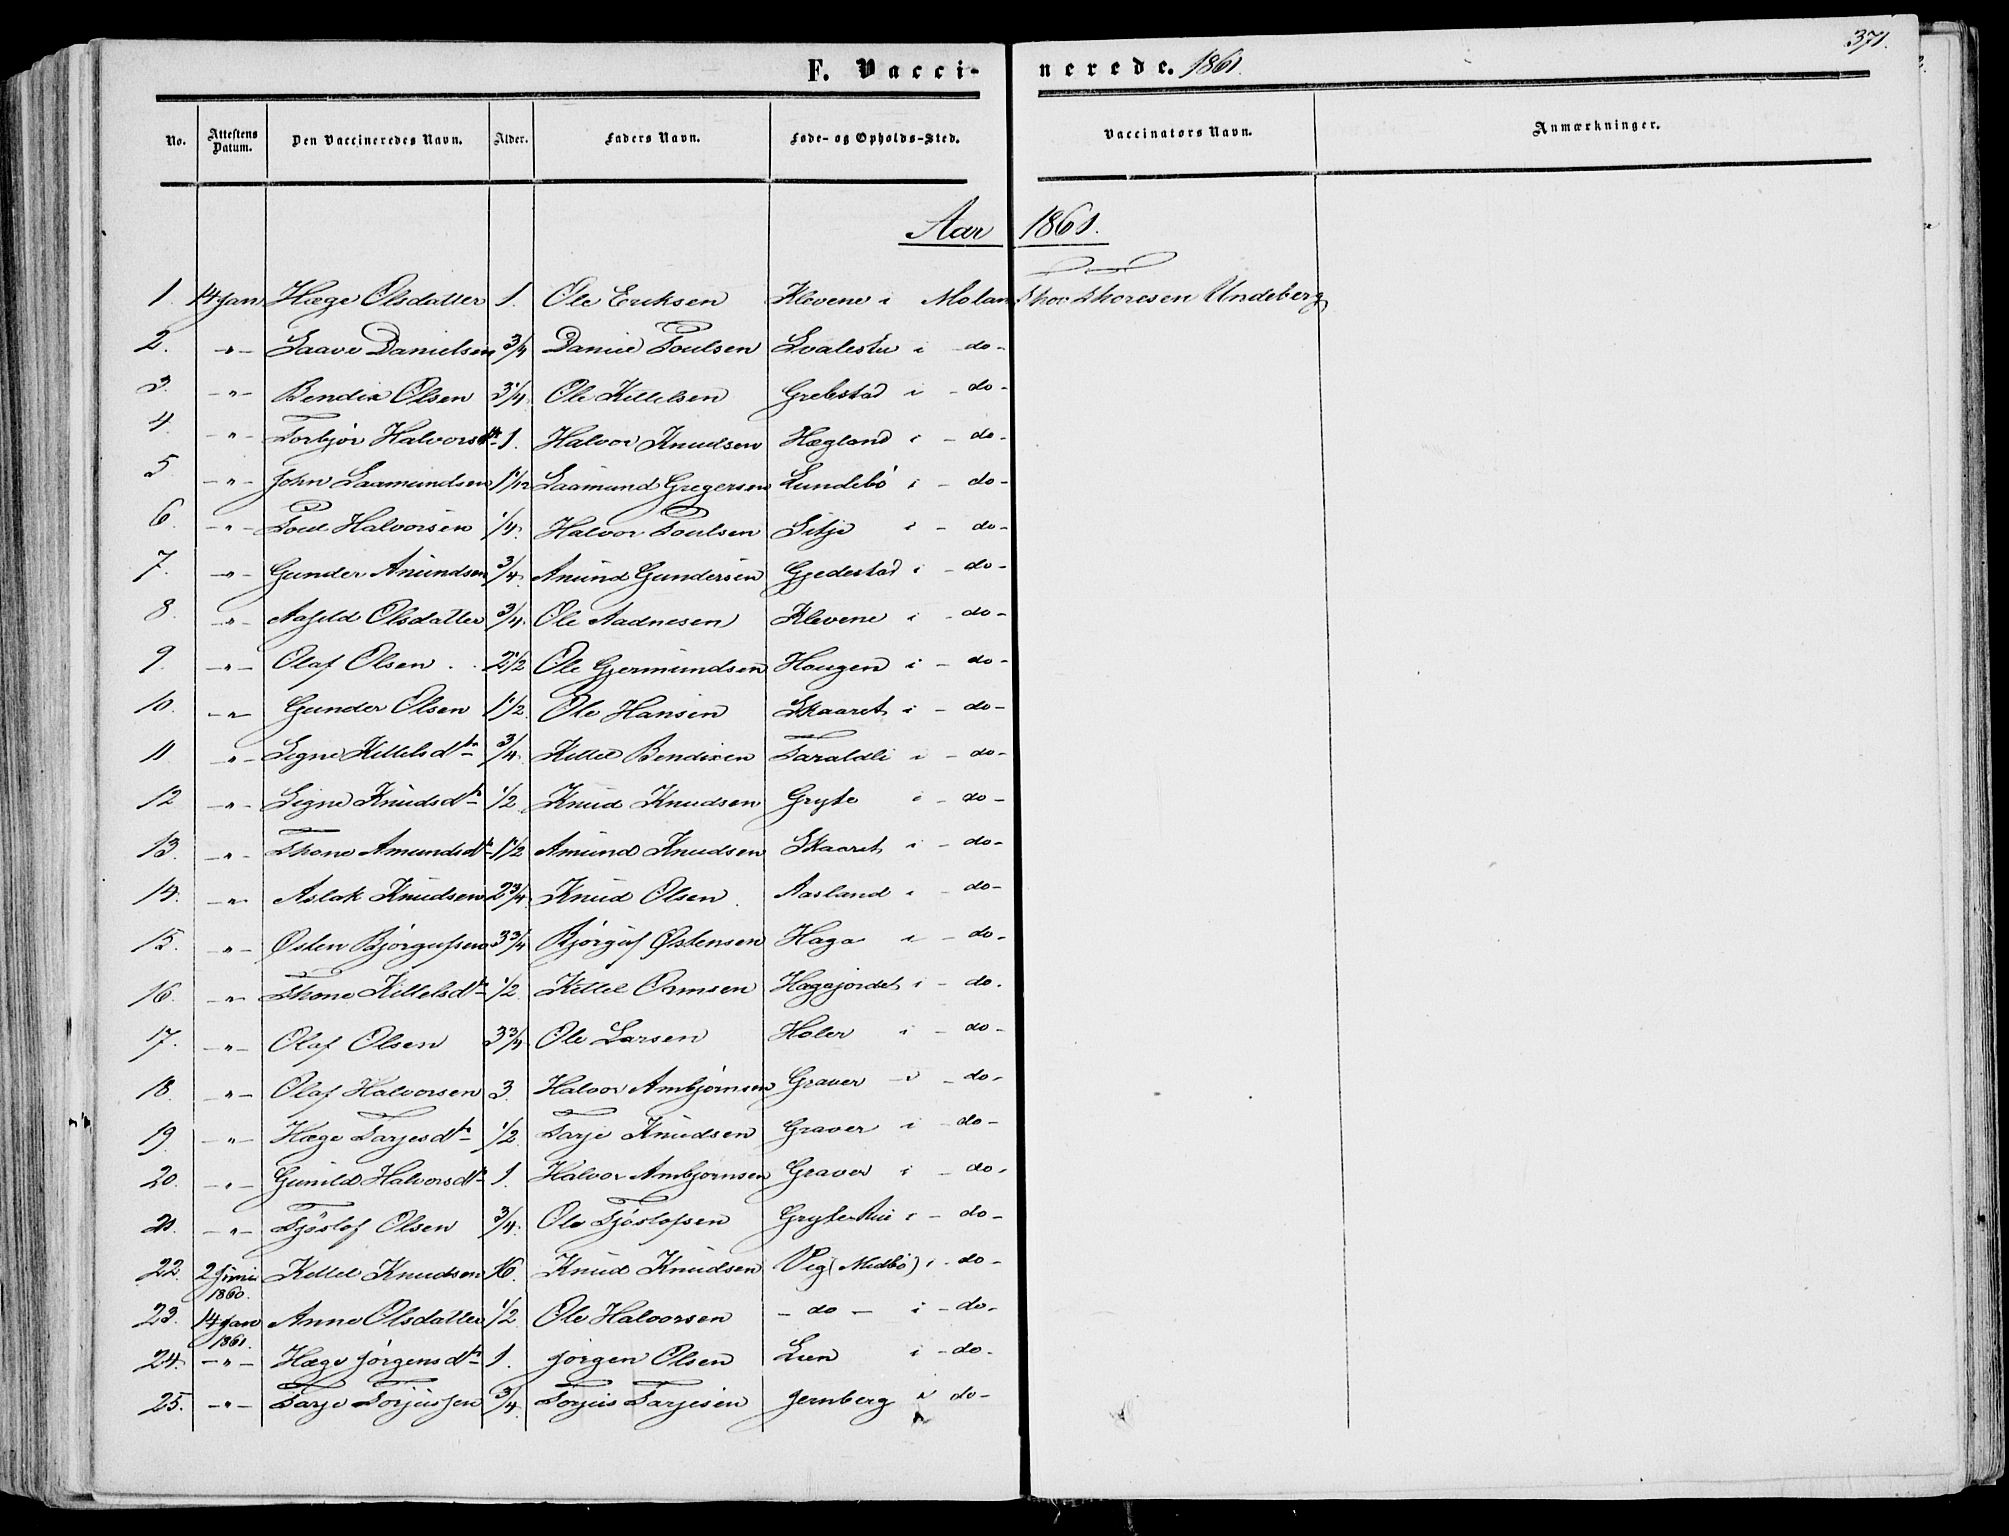 371.
F. Vaccinerede. 1861.
No. Attestens Datum. Den Vaccineredes Navn. Alder. Faders Navn. Føde- og Opholds-Sted. Vaccinators Navn. Anmærkninger.
Aar 1861.
1. 14 Jan Hæge Olsdatter 1. Ole Eriksen Klevene i Moland Thor Thoresen Undeberg
2. -"- Saave Danielsen 3/4 Daniel Poulsen Svalestu i - do -
3. -"- Bendix Olsen 3 1/4 Ole Kittelsen Grebstad i - do -
4. -"- Torbjør Halvorsdtr 1. Halvor Knudsen Hægland i - do -
5 -"- John Saamundsen 1 1/12 Saamund Gregersen Lundebö i - do -
6. -"- Poul Halvorsen 1/4. Halvor Poulsen Sitje i - do -
7. -"- Gunder Anundsen 3/4. Anund Gundersen Gjedestad i - do -
8. -"- Aasild Olsdatter 3/4. Ole Aadnesen Klevene i - do -
9. -"- Olaf Olsen. 2 1/2 Ole Gjermundsen Hougen i - do -
10. -"- Gunder Olsen 1 1/2. Ole Hansen Skaaret i - do -
11. -"- Signe Kittelsdtr 3/4. Kittel Bendixen Taraldli i - do -
12 -"- Signe Knudsdtr 1/2 Knud Knudsen Gryte i - do -
13. -"- Thone Amundsdtr 1 1/2 Amund Knudsen Skaaret i - do -
14. -"- Aslak Knudsen 2 3/4 Knud Olsen. Aasland i - do -
15. -"- Østen Bjørgufsen 3 3/4 Bjørguf Østensen Haga i - do -
16. -"- Thone Kittelsdtr 1/2 Kittel Ormsen Hagajordet i - do.
17. -"- Olaf Olsen 3 3/4 Ole Larsen Holer i - do -
18. -"- Olaf Halvorsen 3. Halvor Ambjørnsen Graver i - do -
19. -"- Hæge Tarjesdtr 1/2. Tarje Knudsen Graver i - do -
20. -"- Gunild Halvorsdtr 1. Halvor Ambjørnsen Graver i - do -
21. -"- Tjöslof Olsen 3/4. Ole Tjöslofsen i - do -
22. 2 Juni 1860. Kittel Knudsen 16. Knud Knudsen Vig (Midbö) i - do -
23. 14 Jan 1861. Anne Olsdatter 1/2 Ole Halvorsen - do - i - do -
24. -"- Hæge Jørgensdtr 1. Jørgen Olsen Lien i - do -
25. -"- Tarje Torjussen 3/4. Torjus Tarjesen Jernberg i do -